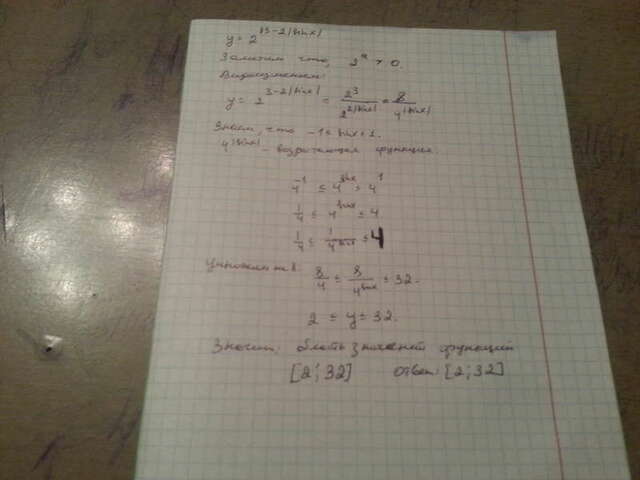 y = 2^{3-2|sinx|}
Заметим что, 2^a > 0.
Видоизменим:
y = 2^{3-2|sinx|} = \frac{2^3}{2^{2|sinx|}} = \frac{8}{4^{|sinx|}}
Знаем, что -1 ≤ sinx ≤ 1.
4^{|sinx|} - возрастающая функция.
4^{-1} ≤ 4^{sinx} ≤ 4^1
\frac{1}{4} ≤ 4^{sinx} ≤ 4
\frac{1}{4} ≤ \frac{1}{4^{sinx}} ≤ 4
Умножим на 8: \frac{8}{4} ≤ \frac{8}{4^{sinx}} ≤ 32.
2 ≤ y ≤ 32.
Значит: область значений функций
[2; 32] Ответ: [2; 32]